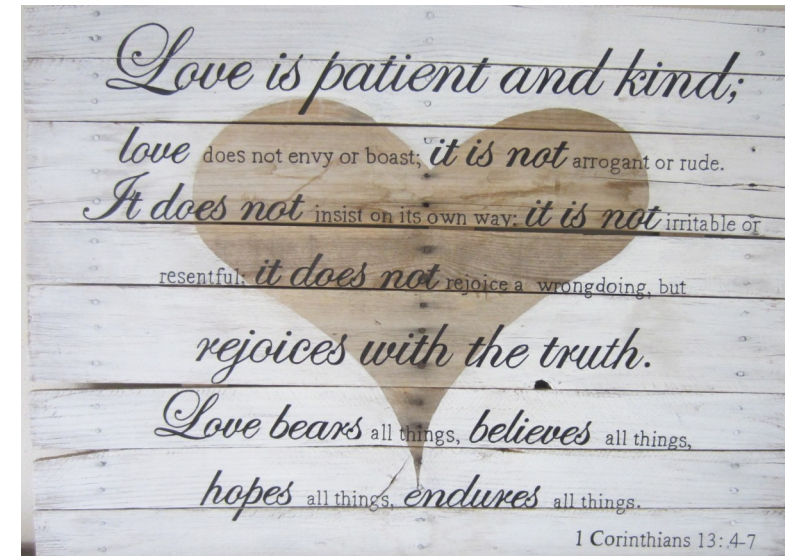 Love is patient and kind;
love does not envy or boast; it is not arrogant or rude.
It does not insist on its own way: it is not irritable or
resentful: it does not rejoice a wrongdoing, but
rejoices with the truth.
Love bears all things, believes all things,
hopes all things, endures all things.
1 Corinthians 13:.4-7